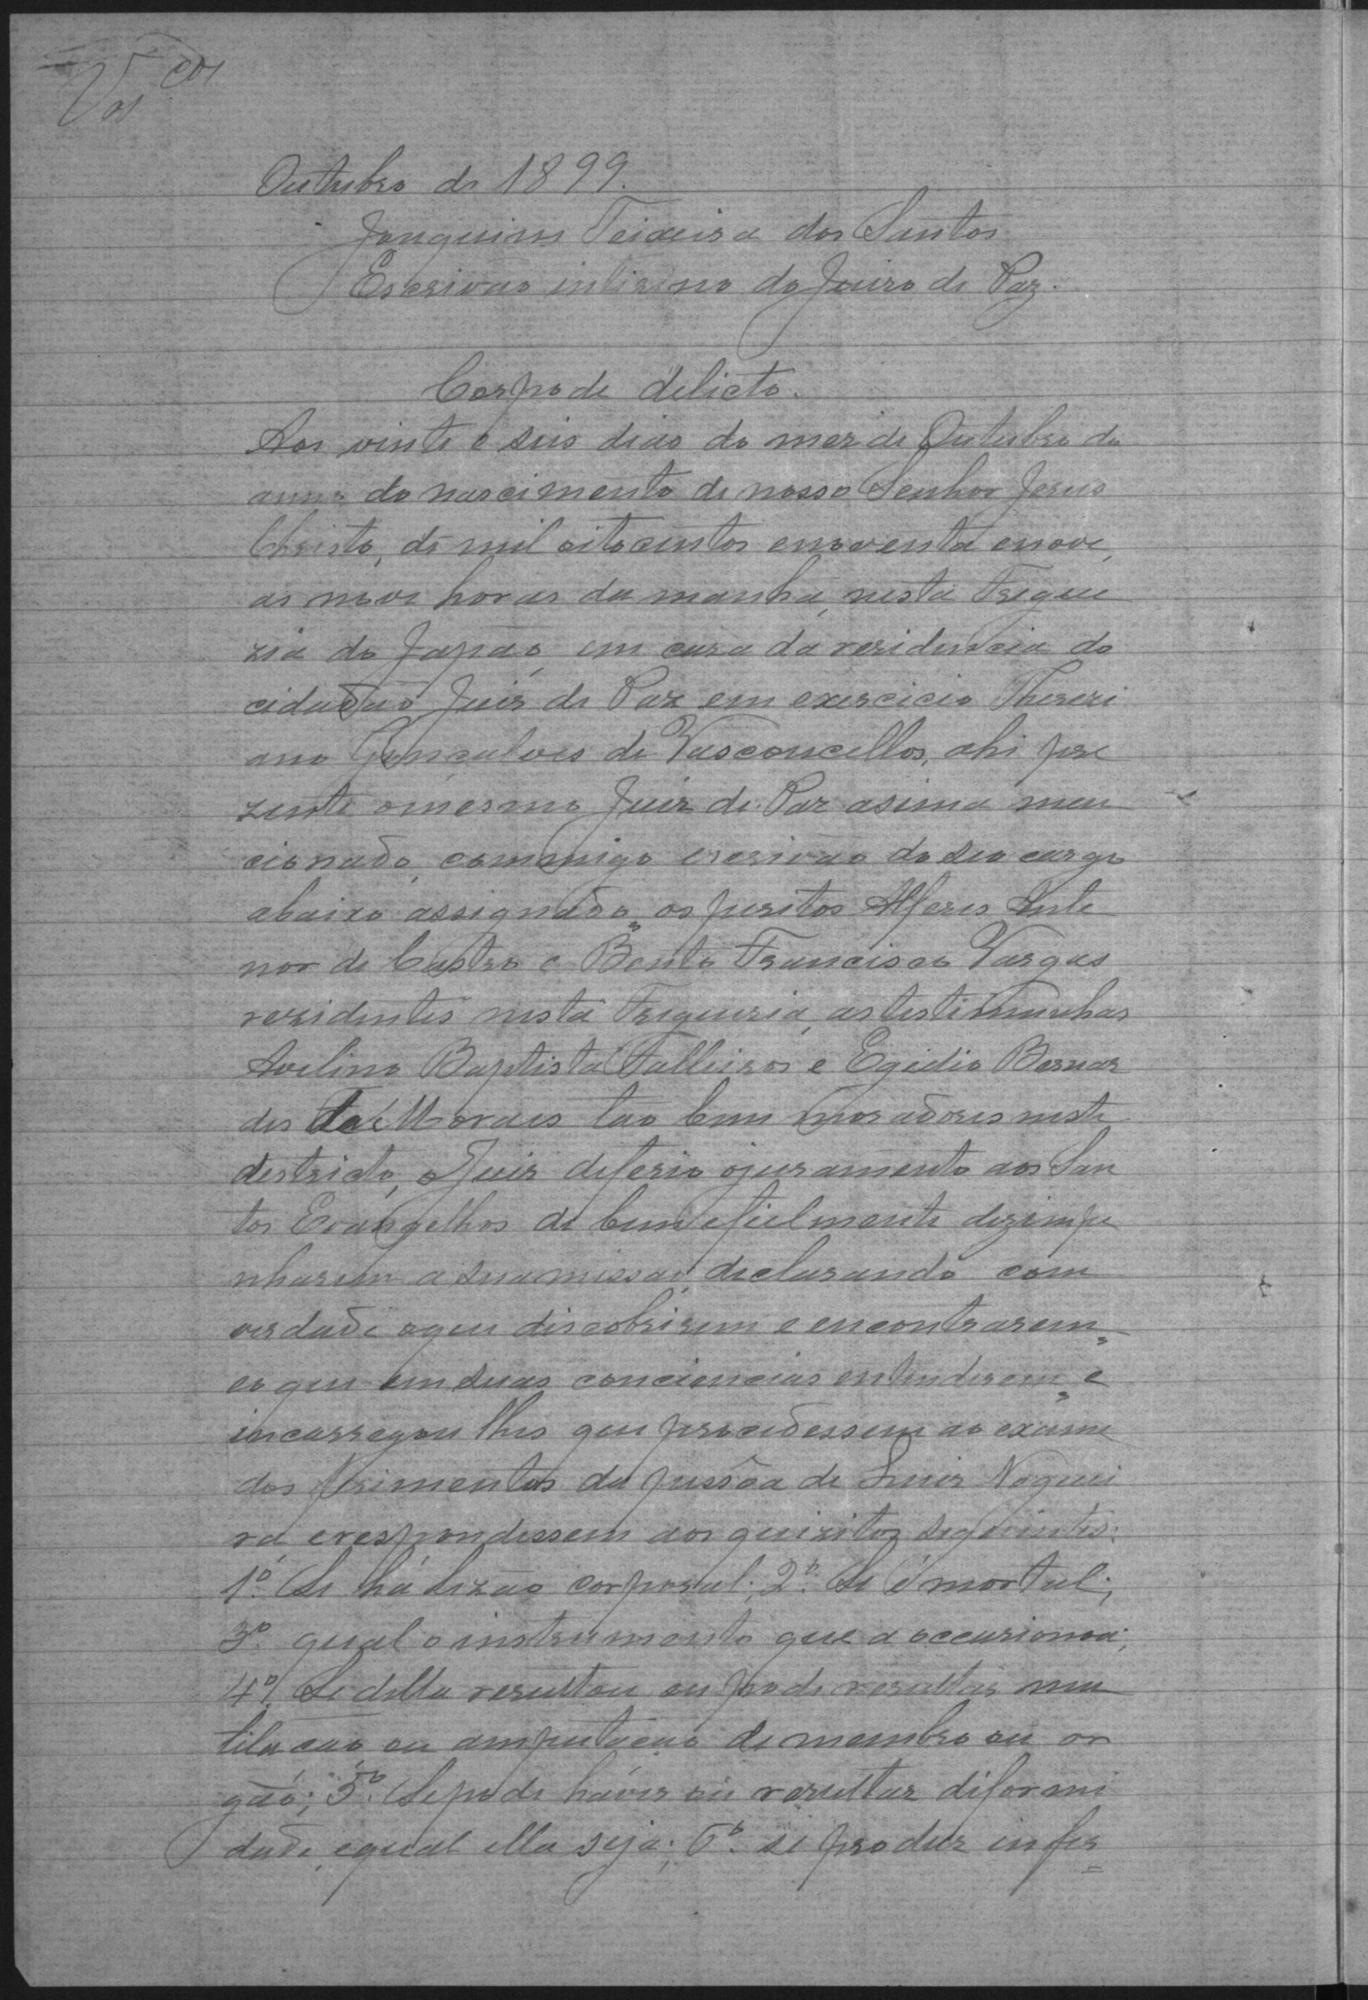 Outubro de 1899.
Joaquim Teixeira dos Santos
Escrivão intirino do Juizo de Paz.
Corpo de delicto.
Aos vinte e seis dias do mez de Outubro do
anno do nascimento de nosso Senhor Jesus
Christo, de mil oitocentos e noventa e nove,
as nove horas da manhã, nesta Fregue
zia do Japão, em caza da rezidencia do
cidadão Juiz de Paz em exercicio Therezi
ano Gonçalves de Vasconcellos, ahi pre
zente o mesmo Juiz de Paz asima men
cionado, commigo escrivão do seo cargo
abaixo assignado, os peritos Alferes Ante
nor de Castro e Bento Francisco Vargas
rezidentes nesta Freguezia, as testimunhas
Avelino Baptista Falleiros e Egidio Bernar
des de Moraes tão bem moradores neste
destricto, o Juiz diferio o juramento aos San
tos Evangelhos de bem e fielmente dezimpe
nharem a sua missão, declarando com
verdade o que discobrirem e encontrarem,
e o que em suas conciencias entenderem, e
incarregou lhes que procedessem ao exame
dos ferimentos da pessôa de Luiz Noguei
ra e respondessem aos quizitos seguintes:
1º. Se há lezão corporal; 2º. Se é mortal;
3º. qual o instrumento que a occazionou;
4º. Se della resultou ou pode resultar mu
tilação ou amputação de membro ou or
gão; 5º. Se pode haver ou resultar diformi
dade, e qual ella seja; 6º. se produz infer=